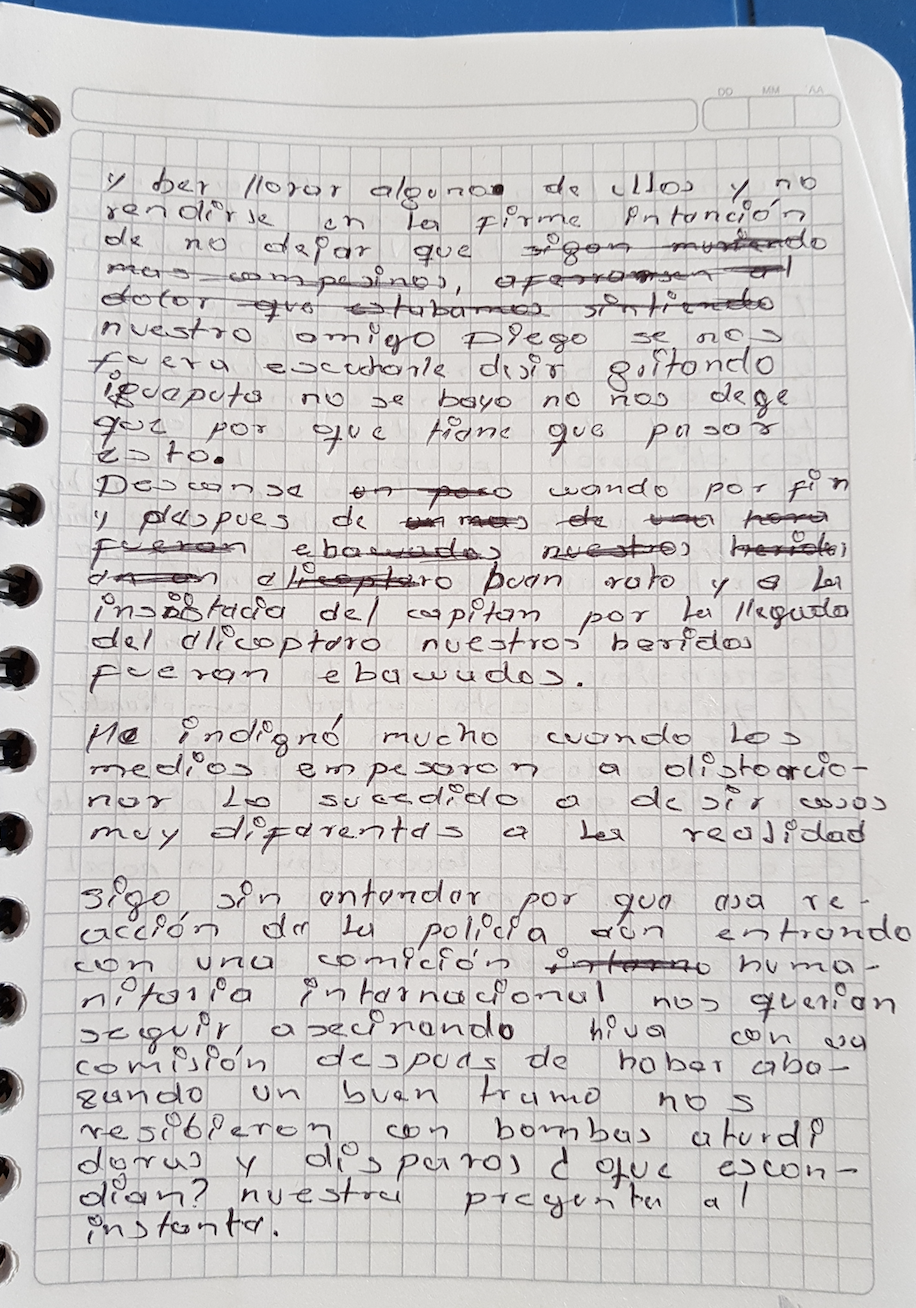 DD MM AA
y ber llorar algunos de ellos y no
rendirse en la firme intención
de no dejar que sigan muriendo
mas campesinos, aferrarsen al
dolor que estabamos sintiendo
nuestro amigo Diego se nos
fuera escucharle desir gritando
iguaputa no se baya no nos dege
que por que tiene que pasar
esto.
Descanse un poco cuando por fin
y despues de un mas de una hora
fueran ebacuados nuestros heridos
en un alicoptero buen rato y a la
insistacia del capitan por la llegada
del alicoptero nuestros heridos
fueran ebacuados.
Me indignó mucho cuando los
medios empesaron a distorcio-
nar lo sucedido a desir cosas
muy diferentes a la realidad
sigo sin entender por que esa re-
acción de la policia aún entrando
con una comición interna huma-
nitaria internacional nos querian
seguir asecinando hiva con esa
comisión despues de haber aba-
zando un buen tramo nos
resibieron con bombas aturdi
doras y disparos ¿ que escon-
dian? nuestra pregunta al
instante.